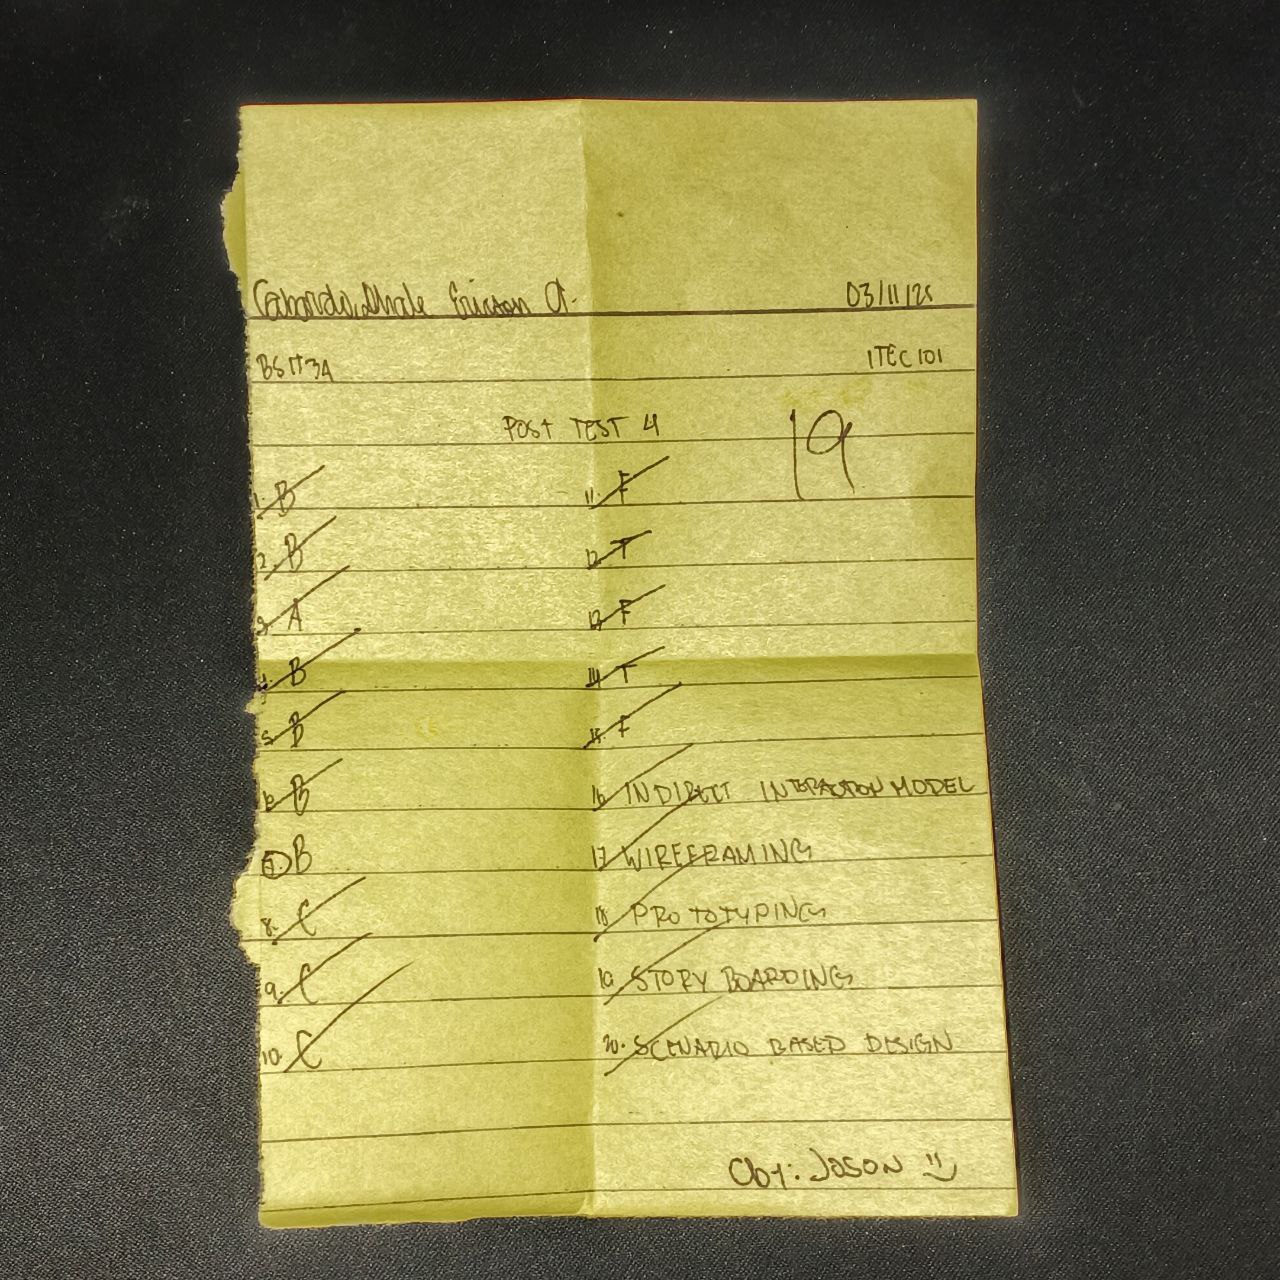 Dhale Ericson A. 03/11/25
BSIT3A ITEC 101
POST TEST 4
19
1. B
2. B
3. A
4. B
5. B
6. B
7 B
8. C
9. C
10. C
11. F
12. T
13. F
14 T
15. F
16. INDIRECT INTERACTION MODEL
17 WIREFRAMING
18 PROTOTYPING
19. STORY BOARDING
20. SCENARIO BASED DESIGN
Cby: JASON